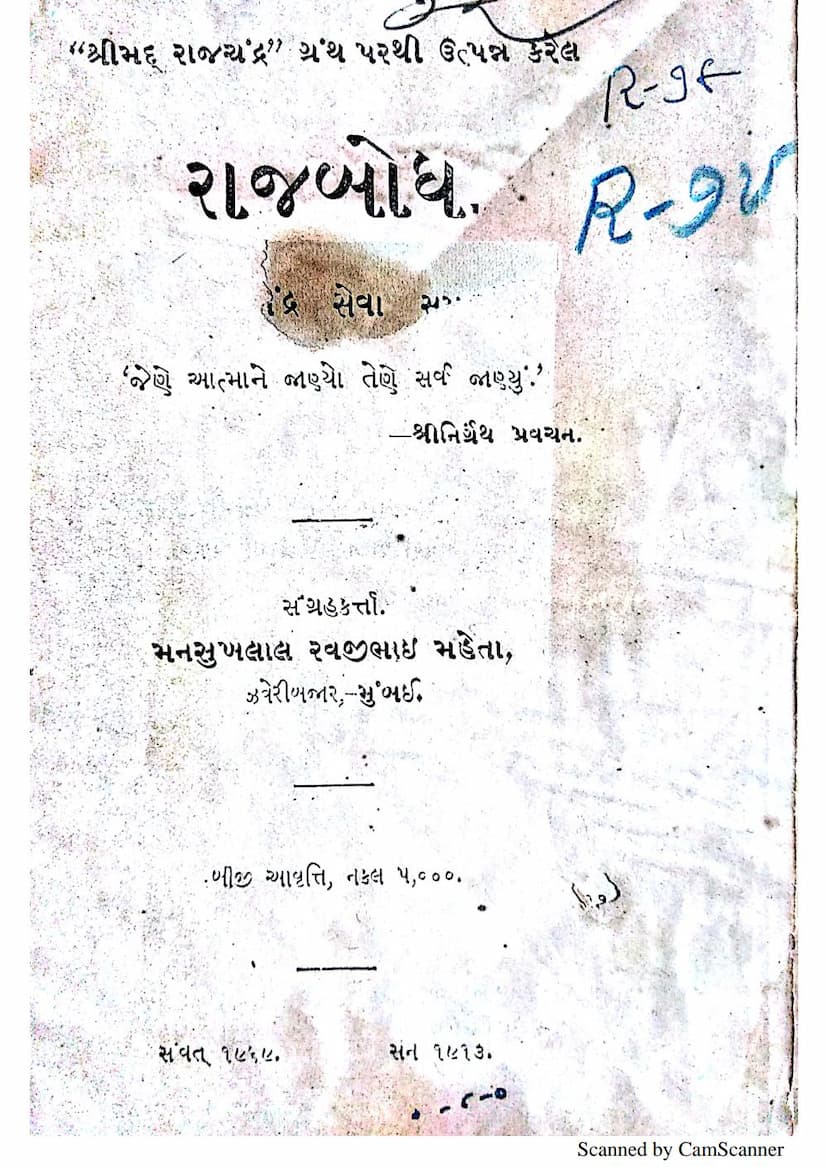 “શ્રીમદ્ રાજચંદ્ર” ગ્રંથ પરથી ઉત્પન્ન કરેલ
R-૧૮
રાજબોધ.
R-૭૫
સેવા
‘જેણે આત્માને જાણ્યો તેણે સર્વ જાણ્યું.’
—શ્રીનિર્ગ્રંથ પ્રવચન.
સંગ્રહકર્ત્તા.
મનસુખલાલ રવજીભાઇ મહેતા,
ઝવેરીબજાર,–મુંબઈ.
બીજી આવૃત્તિ, નકલ ૫,૦૦૦.
સંવત્ ૧૯૬૯. સન ૧૯૧૩.
Scanned by CamScanner